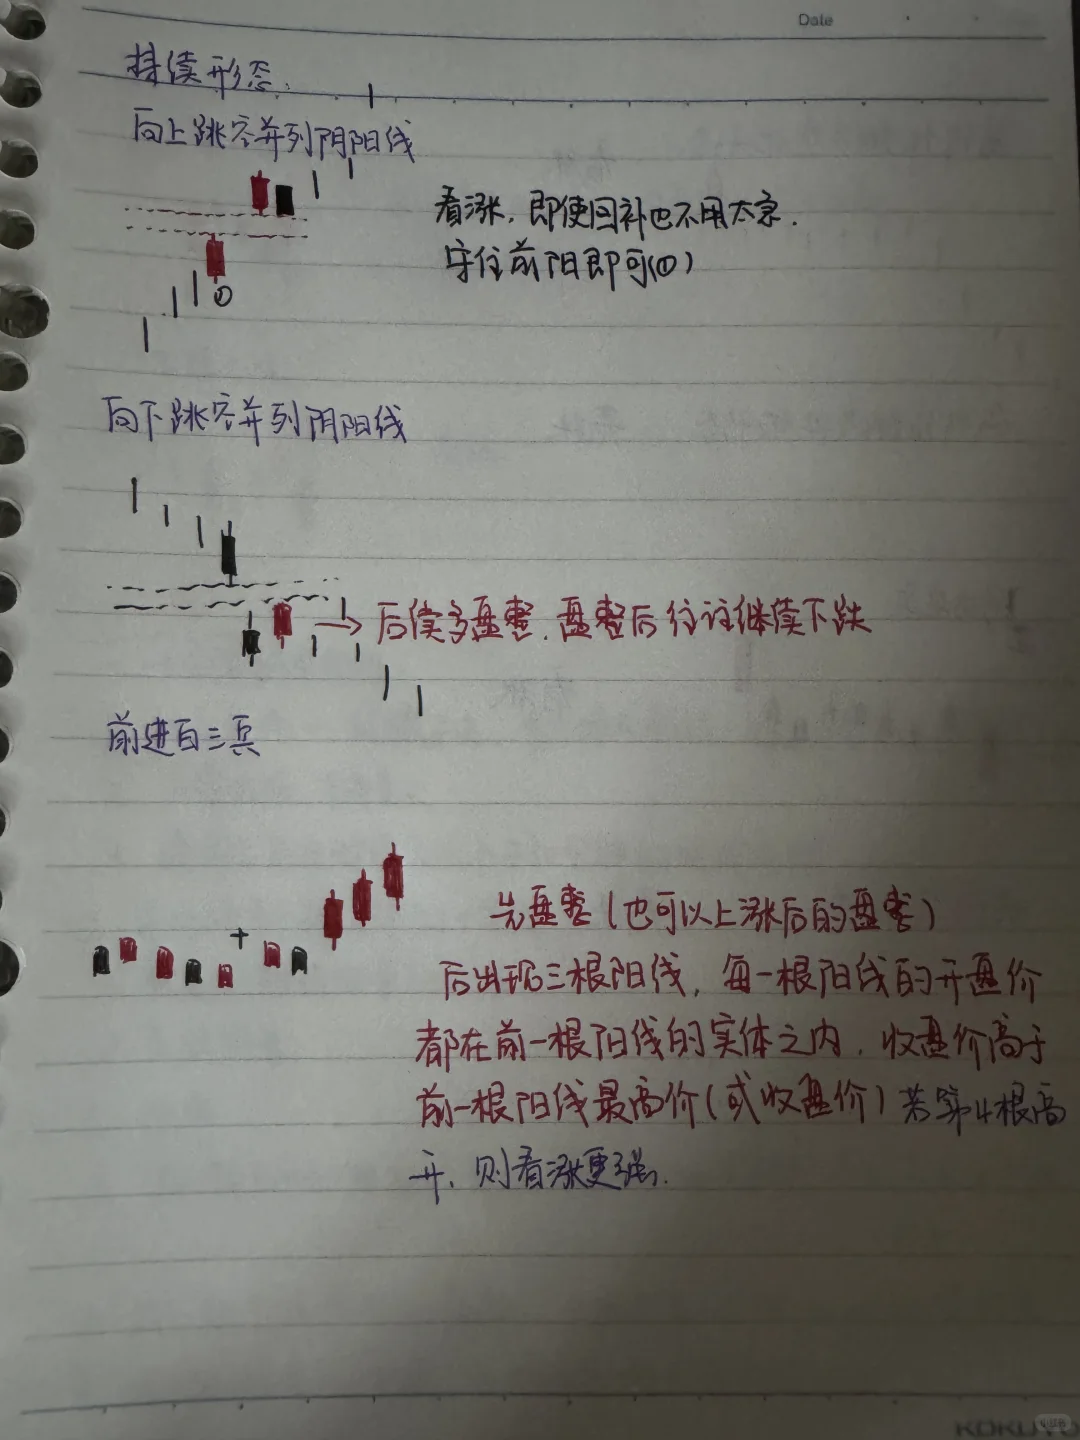 Date
持续形态.
向上跳空并列阴阳线
看涨，即使回补也不用太京.
守住前阳即可(①)
①
向下跳空并列阴阳线
后续多盘整.盘整后往往继续下跌
前进白三兵
先盘整(也可以上涨后的盘整)
后出现三根阳线，每一根阳线的开盘价
都在前一根阳线的实体之内.收盘价高于
前一根阳线最高价(或收盘价)若第4根高
开.则看涨更强.
KOKUYO
小红书